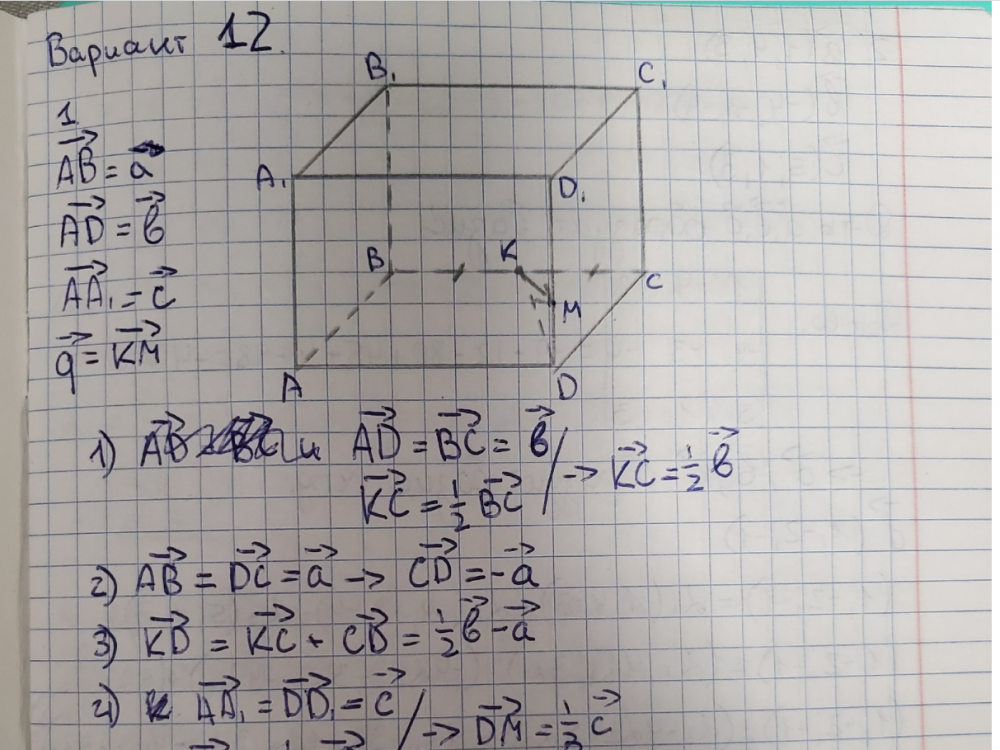 Вариант 12.
1
AB = a
AD = b
AA₁ = c
q = KM
B₁
C₁
A₁
D₁
B
K
C
M
A
D
1) AD = BC = b
KC = ½ BC
→ KC = ½ b
2) AB = DC = a → CD = -a
3) KD = KC + CD = ½ b - a
4) AA₁ = DD₁ = c
→ DM = ⅓ c